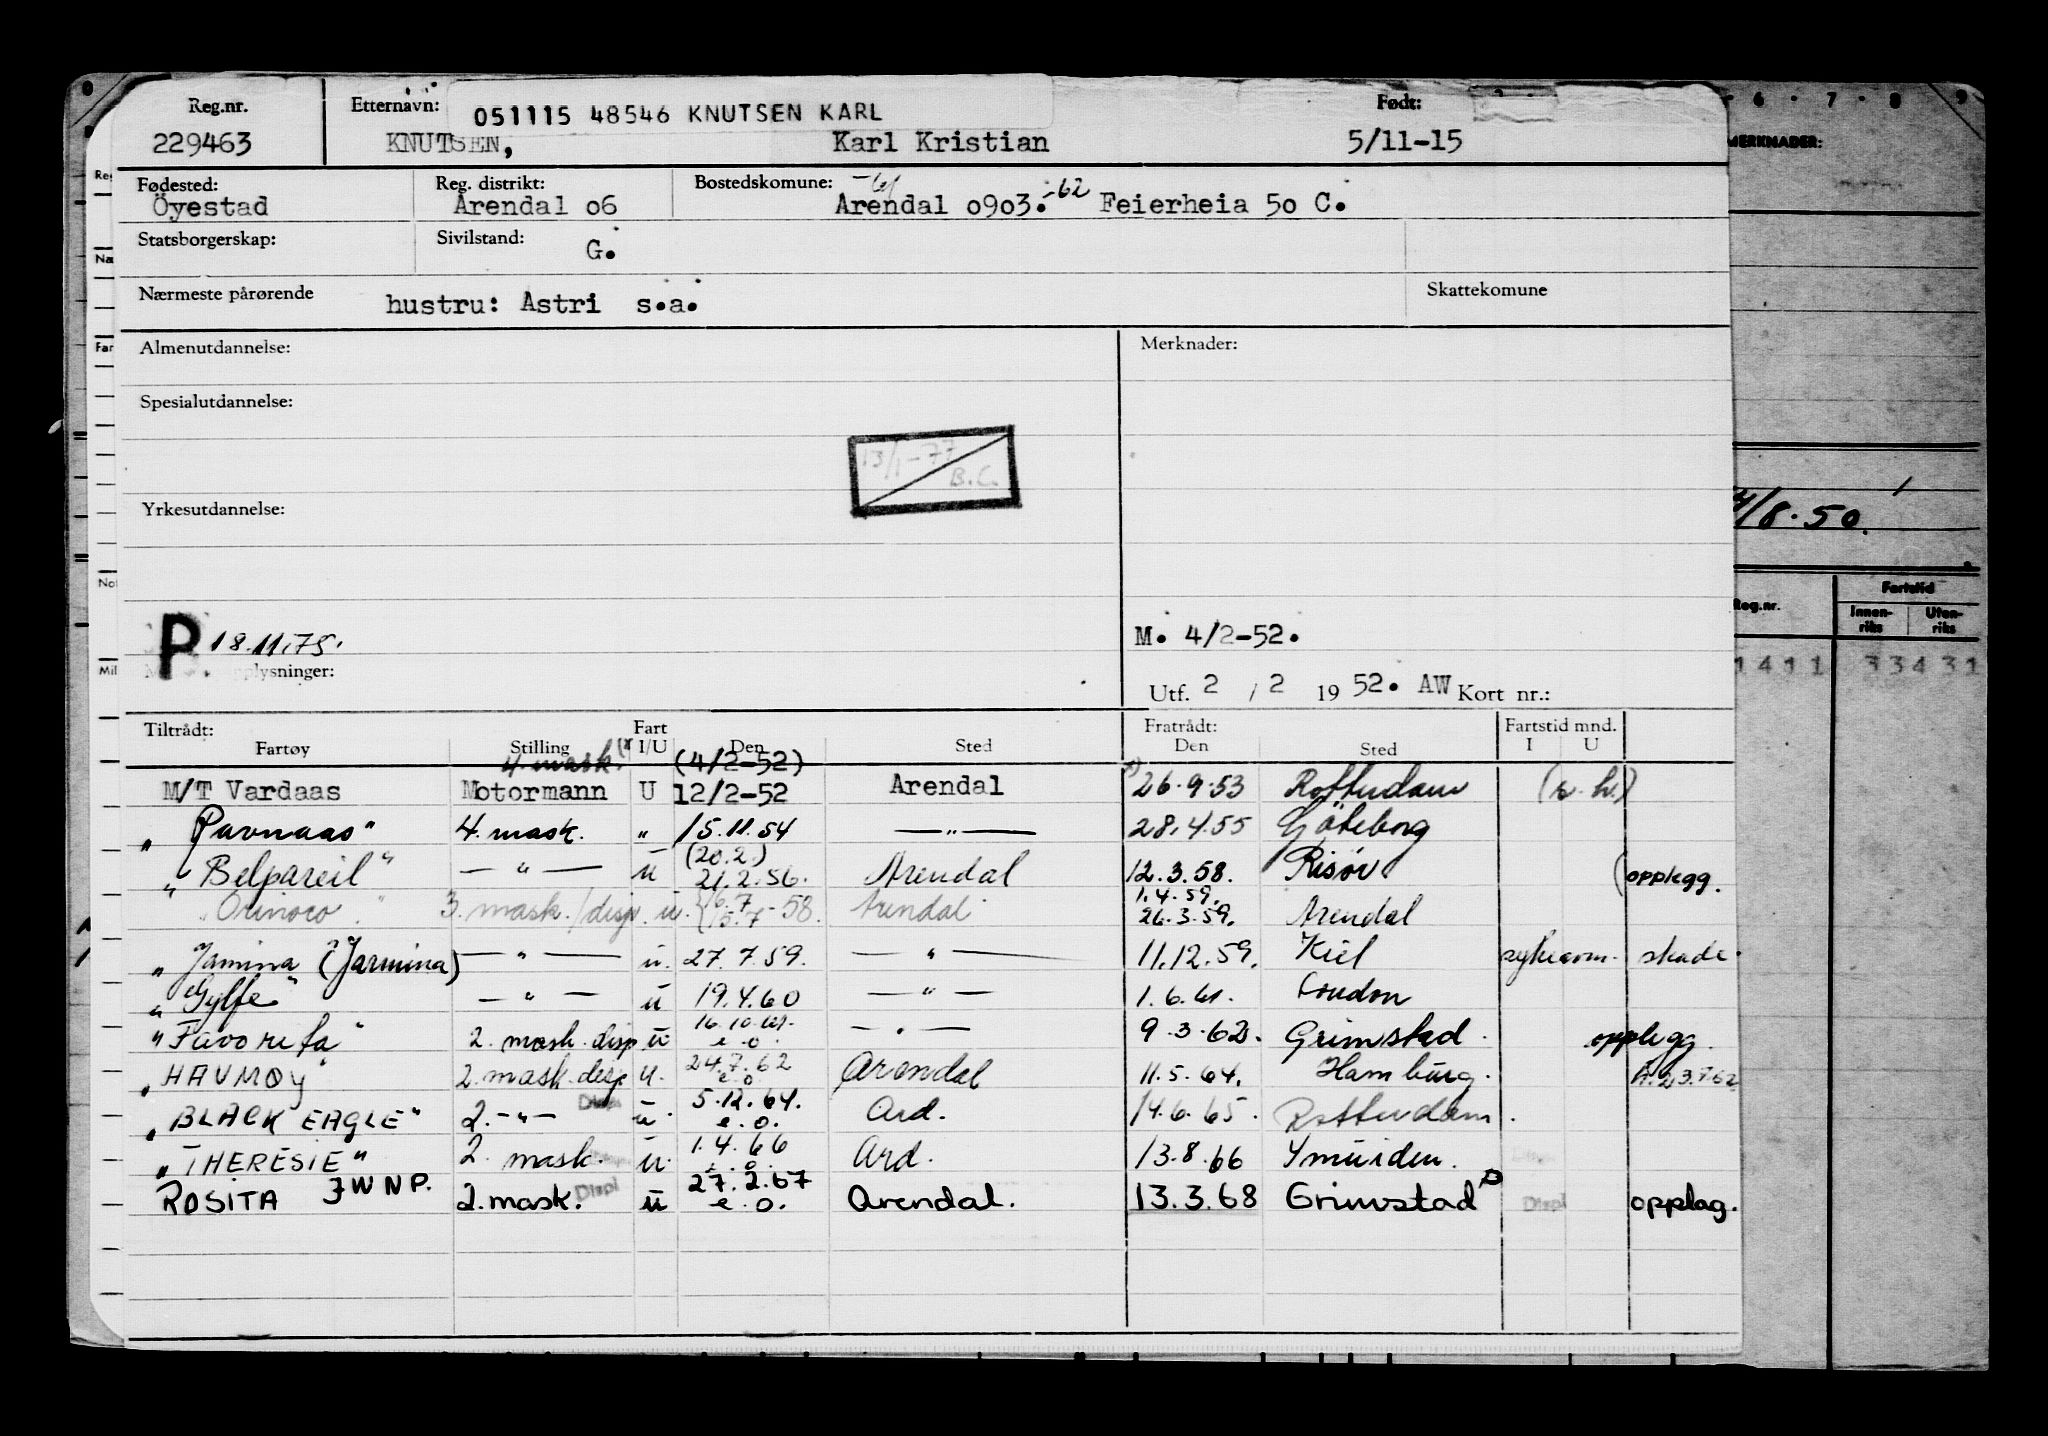 Reg.nr. Etternavn: 051115 48546 KNUTSEN KARL Født:
229463 KNUTSEN, Karl Kristian 5/11-15
Fødested: Reg. distrikt: Bostedskomune:
Öyestad Arendal o6 Arendal o9o3. -62 Feierheia 5o C.
Statsborgerskap: Sivilstand: G.
Nærmeste pårørende hustru: Astri s.a. Skattekomune
Almenutdannelse: Merknader:
Spesialutdannelse:
13/1-77
B.C.
Yrkesutdannelse:
P 18.11.75. M. 4/2-52.
plysninger:
Utf. 2 / 2 19 52. AW Kort nr.:
Tiltrådt: Fart Fratrådt: Fartstid mnd.
Fartøy Stilling I/U Den Sted Den Sted I U
4. mask. (4/2-52)
M/T Vardaas Motormann U 12/2-52 Arendal 26.9.53 Rotterdam
" Ravnaas" 4. mask. " 15.11.54 —"— 28.4.55 Göteborg
" Belpareil" —"— u (20.2.) 21.2.56. Arendal 12.3.58. Risör (opplegg.
" Orinoco." 3. mask./disp. u. {16.7 15.7-58. Arendal 1.4.59. 26.3.59. Arendal
" Jamina" (Jarmina) —"— u. 27.7.59. —"— 11.12.59. Kiel skade.
" Gylfe" —"— u 19.4.60 —"— 1.6.61. London
" Favorita" 2. mask. disp u 16.10.61. e.o. —"— 9.3.62. Grimstad. opplegg.
" HAVMØY" 2. mask. disp u. 24.7.62 e.o. Arendal 11.5.64. Hamburg. A. 23.7.62
" BLACK EAGLE" 2. —"— Disp u. 5.12.64. e.o. Ard. 14.6.65. Rotterdam.
" THERESIE" 2. mask. u. 1.4.66 e.o. Ard. 13.8.66 Ymuiden.
ROSITA JWNP. 2. mask. Displ u 27.2.67 e.o. Arendal. 13.3.68 Grimstad Displ opplag.
6 7 8 9
MERKNADER:
/8.50.
Reg.nr. Fartstid
Innen-riks Uten-riks
1411 33431